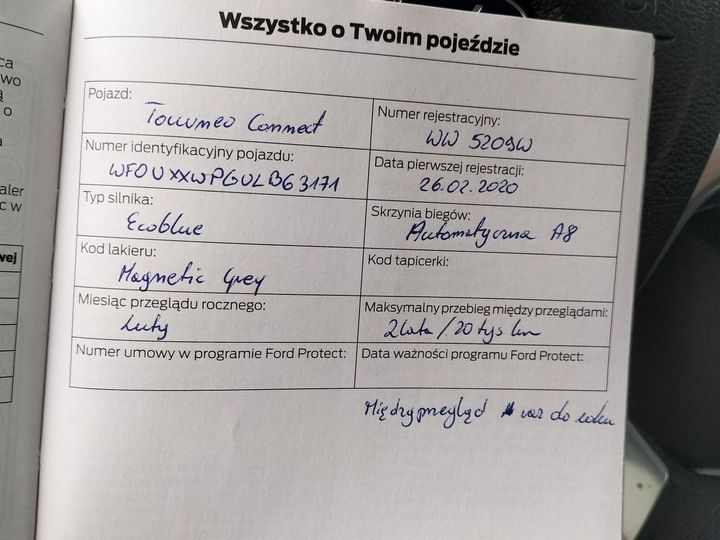 Wszystko o Twoim pojeździe
Pojazd:
Tourneo Connect
Numer rejestracyjny:
WW 5209W
Numer identyfikacyjny pojazdu:
WF0UXXWPGULB63171
Data pierwszej rejestracji:
26.02.2020
Typ silnika:
Ecoblue
Skrzynia biegów:
Automatyczna A8
Kod lakieru:
Magnetic Grey
Kod tapicerki:
Miesiąc przeglądu rocznego:
Luty
Maksymalny przebieg między przeglądami:
2 lata / 20 tys km
Numer umowy w programie Ford Protect:
Data ważności programu Ford Protect:
Międzyprzegląd raz do roku
ca
wo
ą
o
a
aler
c w
wej